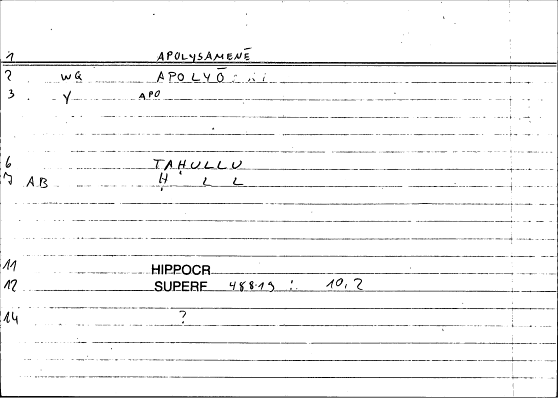 1 APOLYSAMENĒ
2 WG APOLYŌ
3 Y APO
6 TAḤULLU
7 AB Ḥ L L
11 HIPPOCR
12 SUPERF 488·19 : 10,2
14 ?